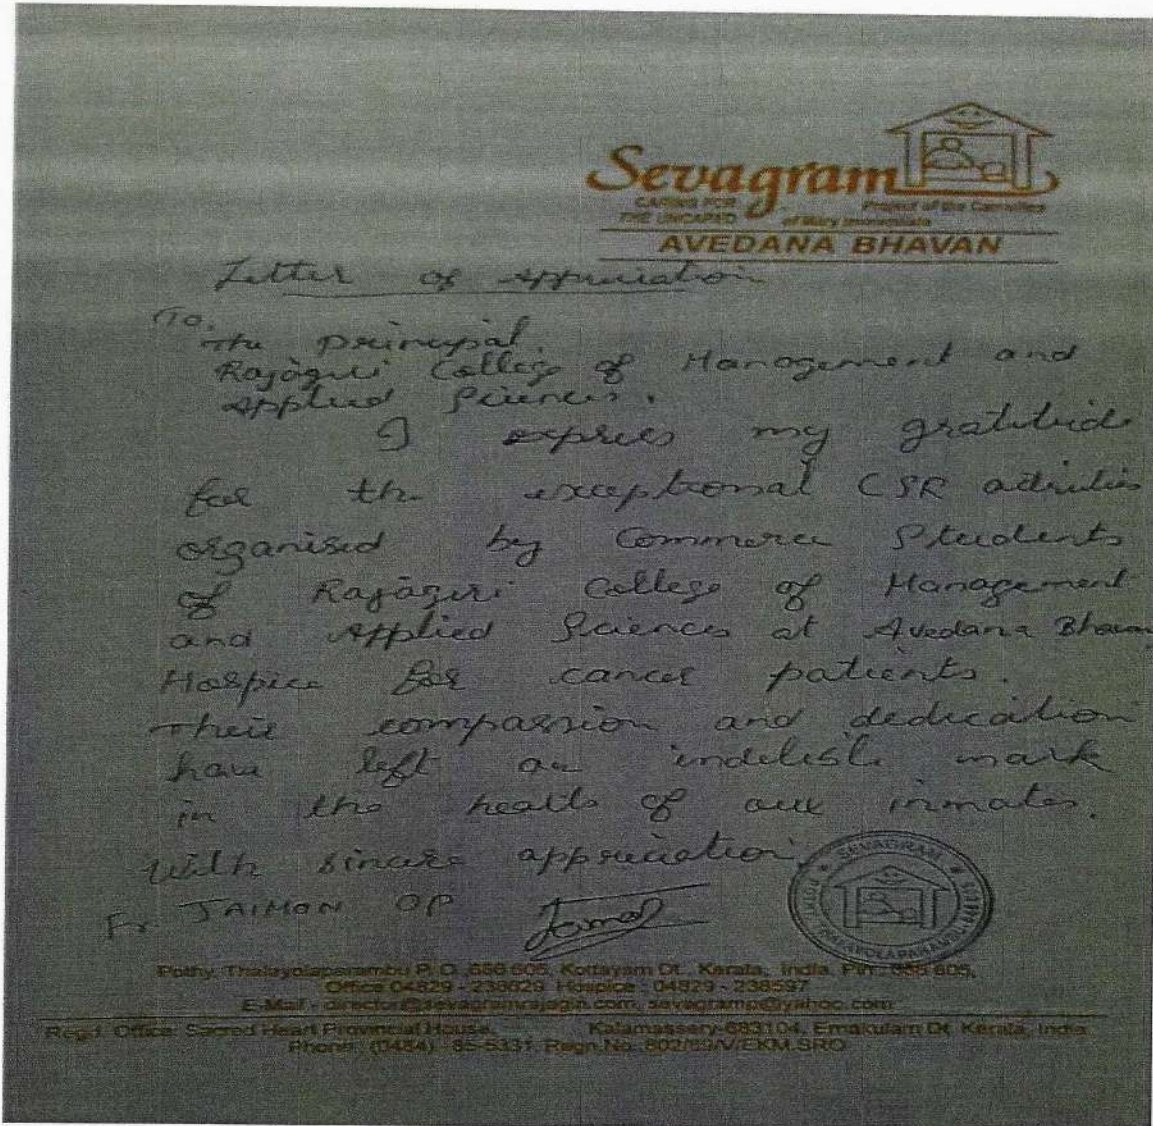 Sevagram
CARING FOR
THE UNCARED
Project of the Carmelites
of Mary Immaculate
AVEDANA BHAVAN
Letter of Appreciation
To,
The principal,
Rajagiri College of Management and
Applied Sciences.
I express my gratitude
for the exceptional CSR activities
organised by Commerce Students
of Rajagiri College of Management
and Applied Sciences at Avedana Bhavan
Hospice for cancer patients.
Their compassion and dedication
have left an indelible mark
in the hearts of our inmates.
With sincere appreciation,
Fr JAIMON OP
SEVAGRAM
Pothy, Thalayolaparambu P. O. 686 605, Kottayam Dt., Kerala, India. Pin: 686 605,
Office 04829 - Hospice : 04829 - 238597
E-Mail - sevagramp@yahoo.com
Regd. Office: Sacred Heart Provincial House, Kalamassery-683104, Ernakulam Dt. Kerala, India.
Phone : (0484) - Regn.No. 802/89/V/EKM.SRO